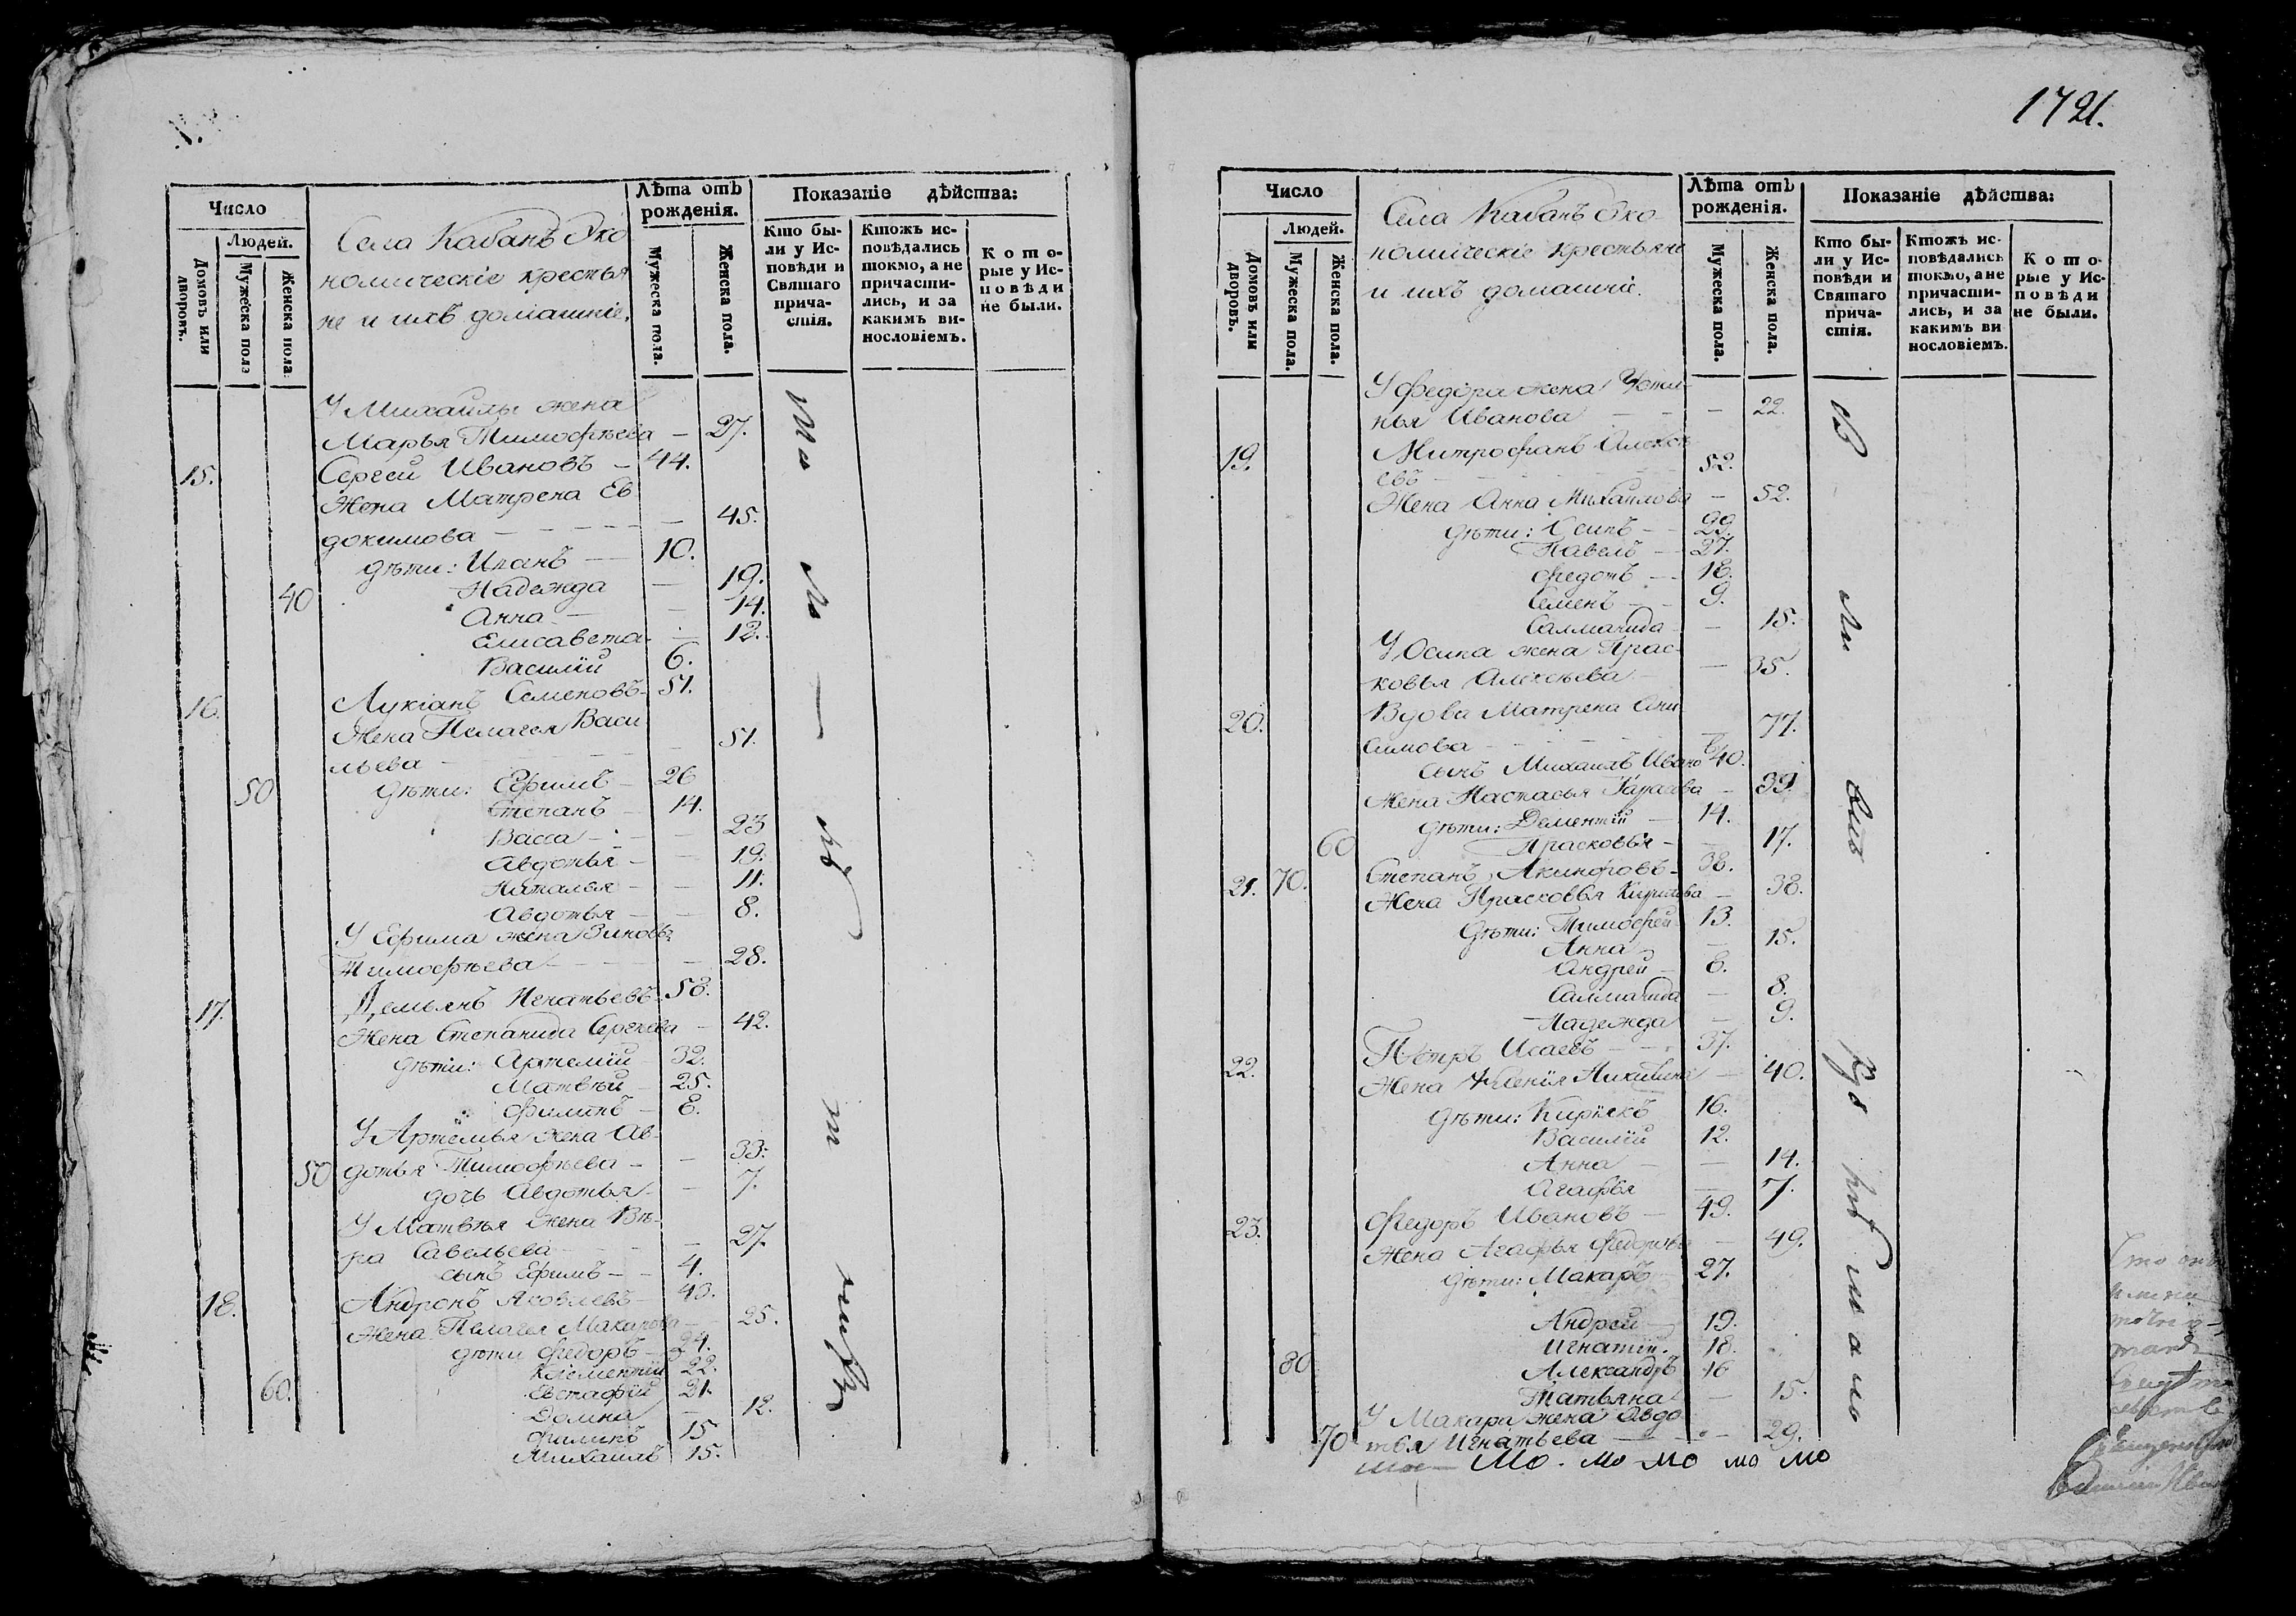 Число
Людей.
Домовъ или дворовъ.
Мужеска пола
Женска пола.
Села Кабанъ Эко
номическіе крестья
не и ихъ домашніе.
Лѣта отъ рожденія.
Мужеска пола.
Женска пола.
Показаніе дѣйства:
Кто бы-
ли у Ис-
повѣди и
Святаго
прича-
стія.
Ктожъ ис-
повѣдались
токмо, а не
причасти-
лись, и за
какимъ ви-
нословіемъ.
К о т о-
рые у Ис-
п о в ѣ д и
не были.
У Михаилы жена
Марья Тимофѣева — 27.
15. Сергей Ивановъ — 44.
Жена Матрена Ев
докимова — 45.
дѣти: Иванъ — 10.
Надежда — 19.
40 Анна — 14.
Елисавета — 12.
Василій 6.
16. Лукіанъ Семеновъ 51.
Жена Пелагея Васи
льева — 51.
50 дѣти: Ефимъ — 26
Степанъ — 14.
Васса — 23
Авдотья — 19.
Наталья — 11.
Авдотья — 8.
У Ефима жена Зиновья
Тимофѣева — 28.
17. Демьянъ Игнатьевъ 58.
Жена Степанида Сергеева — 42.
дѣти: Артемій 32.
Матвѣй 25.
Филипъ — 8.
У Артемья жена Ав-
50 дотья Тимофѣева — 33.
дочь Авдотья — 7.
У Матвѣя жена Вѣ-
ра Савельева — 27.
сынъ Ефимъ — 4.
18. Андронъ Яковлевъ 40.
Жена Пелагея Макарова 25.
дѣти Федоръ — 24.
Клементій 22.
60. Евстафій 21.
Домна — 12.
Филипъ 15
Михаилъ 15.
1721.
Число
Людей.
Домовъ или дворовъ.
Мужеска пола.
Женска пола.
Села Кабанъ Эко
номическіе крестьяне
и ихъ домашніе.
Лѣта отъ рожденія.
Мужеска пола.
Женска пола.
Показаніе дѣйства:
Кто бы-
ли у Ис-
повѣди и
Святаго
прича-
стія.
Ктожъ ис-
повѣдались
токмо, а не
причасти-
лись, и за
какимъ ви
нословіемъ.
К о т о-
рые у Ис-
п о в ѣ д и
не были.
У Федора жена Усти-
нья Иванова — 22.
19. Митрофанъ Алексе
евъ — 52.
Жена Анна Михайлова — 52.
дѣти: Осипъ — 29.
Павелъ — 27.
Федотъ — 18.
Семенъ — 9.
Саламанида — 15.
У Осипа жена Прас-
ковья Алексѣева — 35.
20. Вдова Матрена Они
симова — 77.
сынъ Михаилъ Ивано 40.
Жена Настасья — 39
дѣти: Дементій — 14.
60 Прасковья — 17.
21. 70. Степанъ Акинфовъ 38.
Жена Прасковья Кирилова — 38.
дѣти: Тимофей 13.
Анна — 15.
Андрей — 8.
Саламанида — 8.
Надежда — 9.
22. Петръ Исаевъ — 37.
Жена Ксенія Никитина — 40.
дѣти: Кирикъ 16.
Василій 12.
Анна — 14.
Агафья — 7.
23. Федоръ Ивановъ — 49.
Жена Агафья Федорова — 49.
дѣти: Макаръ 27.
Андрей 19.
Игнатій. 18.
80 Александръ 16
Татьяна — 15.
У Макара жена Авдо
70 тья Игнатьева — 29.
мо мо мо мо мо